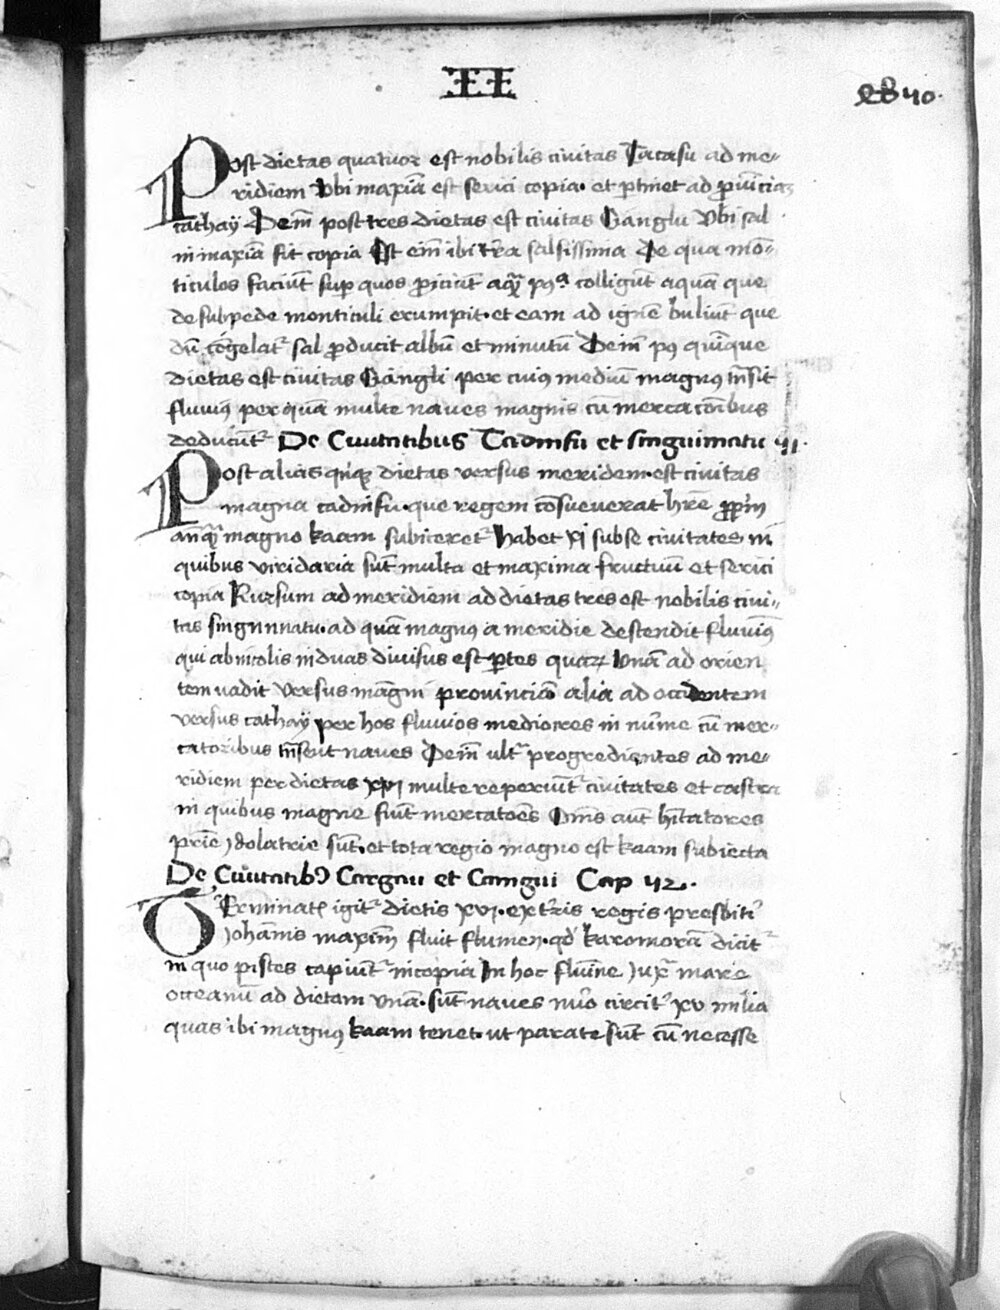 II
40.
Post dietas quatuor est nobilis civitas Cacasu ad me-
ridiem Vbi maxīa est serici copia. et ptīnet ad pvīcias
cathaÿ Deīn post tres dietas est civitas Ciānglu Vbi sal
in maxīa fit copia Est enī ibi tr̄a salsissima De qua mō-
ticulos faciūt sup quos proiciūt aquā colligūt aquam que
de sub pede monticuli erumpit. et eam ad ignē buliūt que
dū cōgelat' sal producit albū et minutū Deīn pꝰ quīque
dietas est civitas Ciāngli per cuiꝰ mediū magnꝰ trāsit
fluviꝰ per quā multe naves magnis cū mercacōibus
deducūt' De Civitatibus Tadinfu et singuimatu 41.
Post alias quinque dietas versus meridem. est civitas
magna tadinfu. que regem cōsueverat hr̄e
anquā magno kaam subiceret' Habet xi sub se civitates in
quibus viridaria sūt multa et maxima fructuū et serici
copia Rursum ad meridiem ad dietas tres est nobilis civi-
tas singuimatu. ad quā magnꝰ a meridie descendit fluviꝰ
qui ab incolis in duas divisus est ptes quaꝝ Vnā ad orien
tem vadit versus māgni provinciā alia ad occidentem
versus cathaÿ per hos fluvios mediocres in nūme cū mer-
catoribus trāseūt naves Deīn ult' progredientes ad me-
ridiem per dietas xvi multe reperiūt' civitates et castra
in quibus magne fiūt mercatōes Oms aūt hītatores
prīe ydolatrie sūt. et tota regio magno est kaam subiecta
De Civitatibꝰ Caygau et Camgui Cap 42.
Terminatis igit' dietis xvi. ext'ris regis presbit'
Johānis maxim̄ fluit flumen. qd' karomorā dicit'
in quo pisces capiūt' in copia In hoc flumīe Juxᵃ mare
occeanū ad dietam Vnā. sūt naves nūo circit' xv milia
quas ibi magnꝰ kaam tenet. ut parate sūt cū necesse